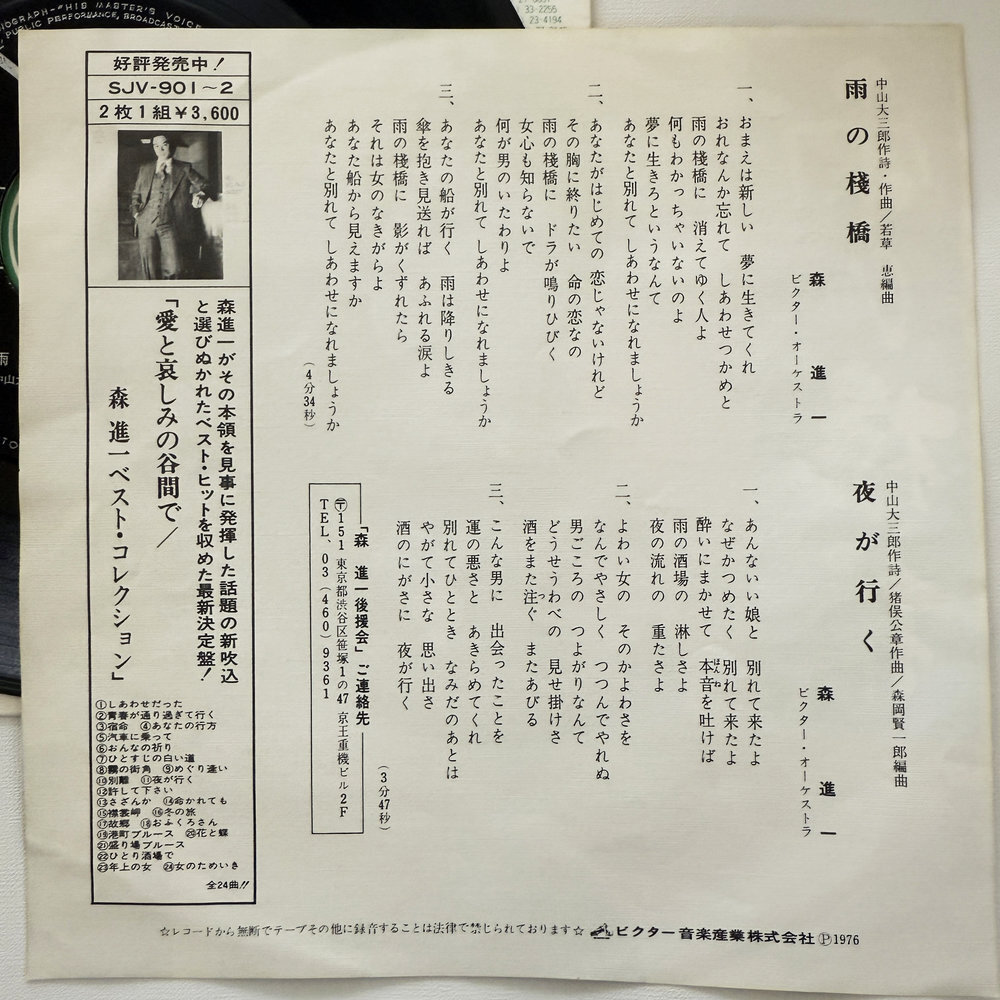 雨の棧橋
中山大三郎作詩・作曲／若草 恵編曲
森 進一
ビクター・オーケストラ
一、おまえは新しい 夢に生きてくれ
おれなんか忘れて しあわせつかめと
雨の棧橋に 消えてゆく人よ
何もわかっちゃいないのよ
夢に生きろというなんて
あなたと別れて しあわせになれましょうか
二、あなたがはじめての 恋じゃないけれど
その胸に終りたい 命の恋なの
雨の棧橋に ドラが鳴りひびく
女心も知らないで
何が男のいたわりよ
あなたと別れて しあわせになれましょうか
三、あなたの船が行く 雨は降りしきる
傘を抱き見送れば あふれる涙よ
雨の棧橋に 影がくずれたら
それは女のなきがらよ
あなた船から見えますか
あなたと別れて しあわせになれましょうか
（4分34秒）
夜が行く
中山大三郎作詩／猪俣公章作曲／森岡賢一郎編曲
森 進一
ビクター・オーケストラ
一、あんないい娘と 別れて来たよ
なぜかつめたく 別れて来たよ
酔いにまかせて 本音を吐けば
ほんね
雨の酒場の 淋しさよ
夜の流れの 重たさよ
二、よわい女の そのかよわさを
なんでやさしく つつんでやれぬ
男ごころの つよがりなんて
どうせうわべの 見せ掛けさ
酒をまた注ぐ またあびる
つ
三、こんな男に 出会ったことを
運の悪さと あきらめてくれ
別れてひととき なみだのあとは
やがて小さな 思い出さ
酒のにがさに 夜が行く
（3分47秒）
「森 進一後援会」ご連絡先
〒151 東京都渋谷区笹塚1の47 京王重機ビル2F
TEL、03（460）9361
好評発売中！
SJV-901～2
2枚1組￥3,600
森進一がその本領を見事に発揮した話題の新吹込
と選びぬかれたベスト・ヒットを収めた最新決定盤！
「愛と哀しみの谷間で／
森 進一ベスト・コレクション」
①しあわせだった
②青春が通り過ぎて行く
③宿命 ④あなたの行方
⑤汽車に乗って
⑥おんなの祈り
⑦ひとすじの白い道
⑧霧の街角 ⑨めぐり逢い
⑩別離 ⑪夜が行く
⑫許して下さい
⑬さざんか ⑭命かれても
⑮襟裳岬 ⑯冬の旅
⑰故郷 ⑱おふくろさん
⑲港町ブルース ⑳花と蝶
㉑盛り場ブルース
㉒ひとり酒場で
㉓年上の女 ㉔女のためいき
全24曲!!
☆レコードから無断でテープその他に録音することは法律で禁じられております☆
ビクター音楽産業株式会社 Ⓟ1976
33-2256
23-4194